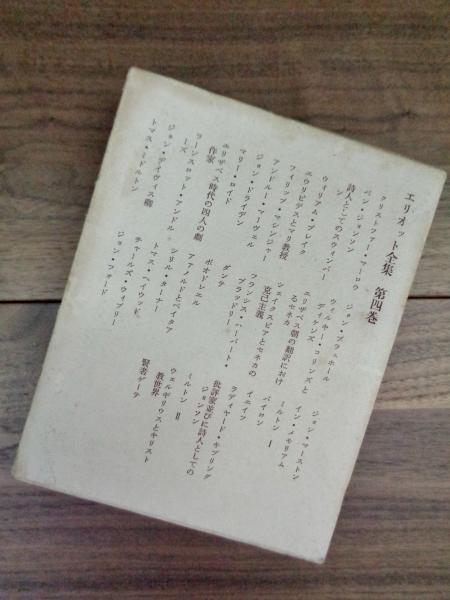 エリオット全集 第四巻
クリストファー・マーロウ
ベン・ジョンソン
詩人としてのスウィンバーン
ウィリアム・ブレイク
エウリピデスとマリ教授
フィリップ・マシンジャー
アンドルー・マーヴェル
ジョン・ドライデン
マリー・ロイド
エリザベス時代の四人の劇
作家
ラーンスロット・アンドル
ーズ
ジョン・デイヴィス卿
トマス・ミドルトン
ジョン・ブラムホール
ウィルキー・コリンズと
ディケンズ
エリザベス朝の翻訳におけ
るセネカ
シェイクスピアとセネカの
克己主義
フランシス・ハーバート・
ブラッドリー
ダンテ
ボオドレエル
アアノルドとペイタア
シリル・ターナー
トマス・ヘイウッド
チャールズ・ウィブリー
ジョン・フォード
ジョン・マーストン
イン・メモリアム
ミルトン Ⅰ
バイロン
イエイツ
ラディヤード・キプリング
批評家並びに詩人としての
ジョンソン
ミルトン Ⅱ
ウェルギリウスとキリスト
教世界
賢者ゲーテ